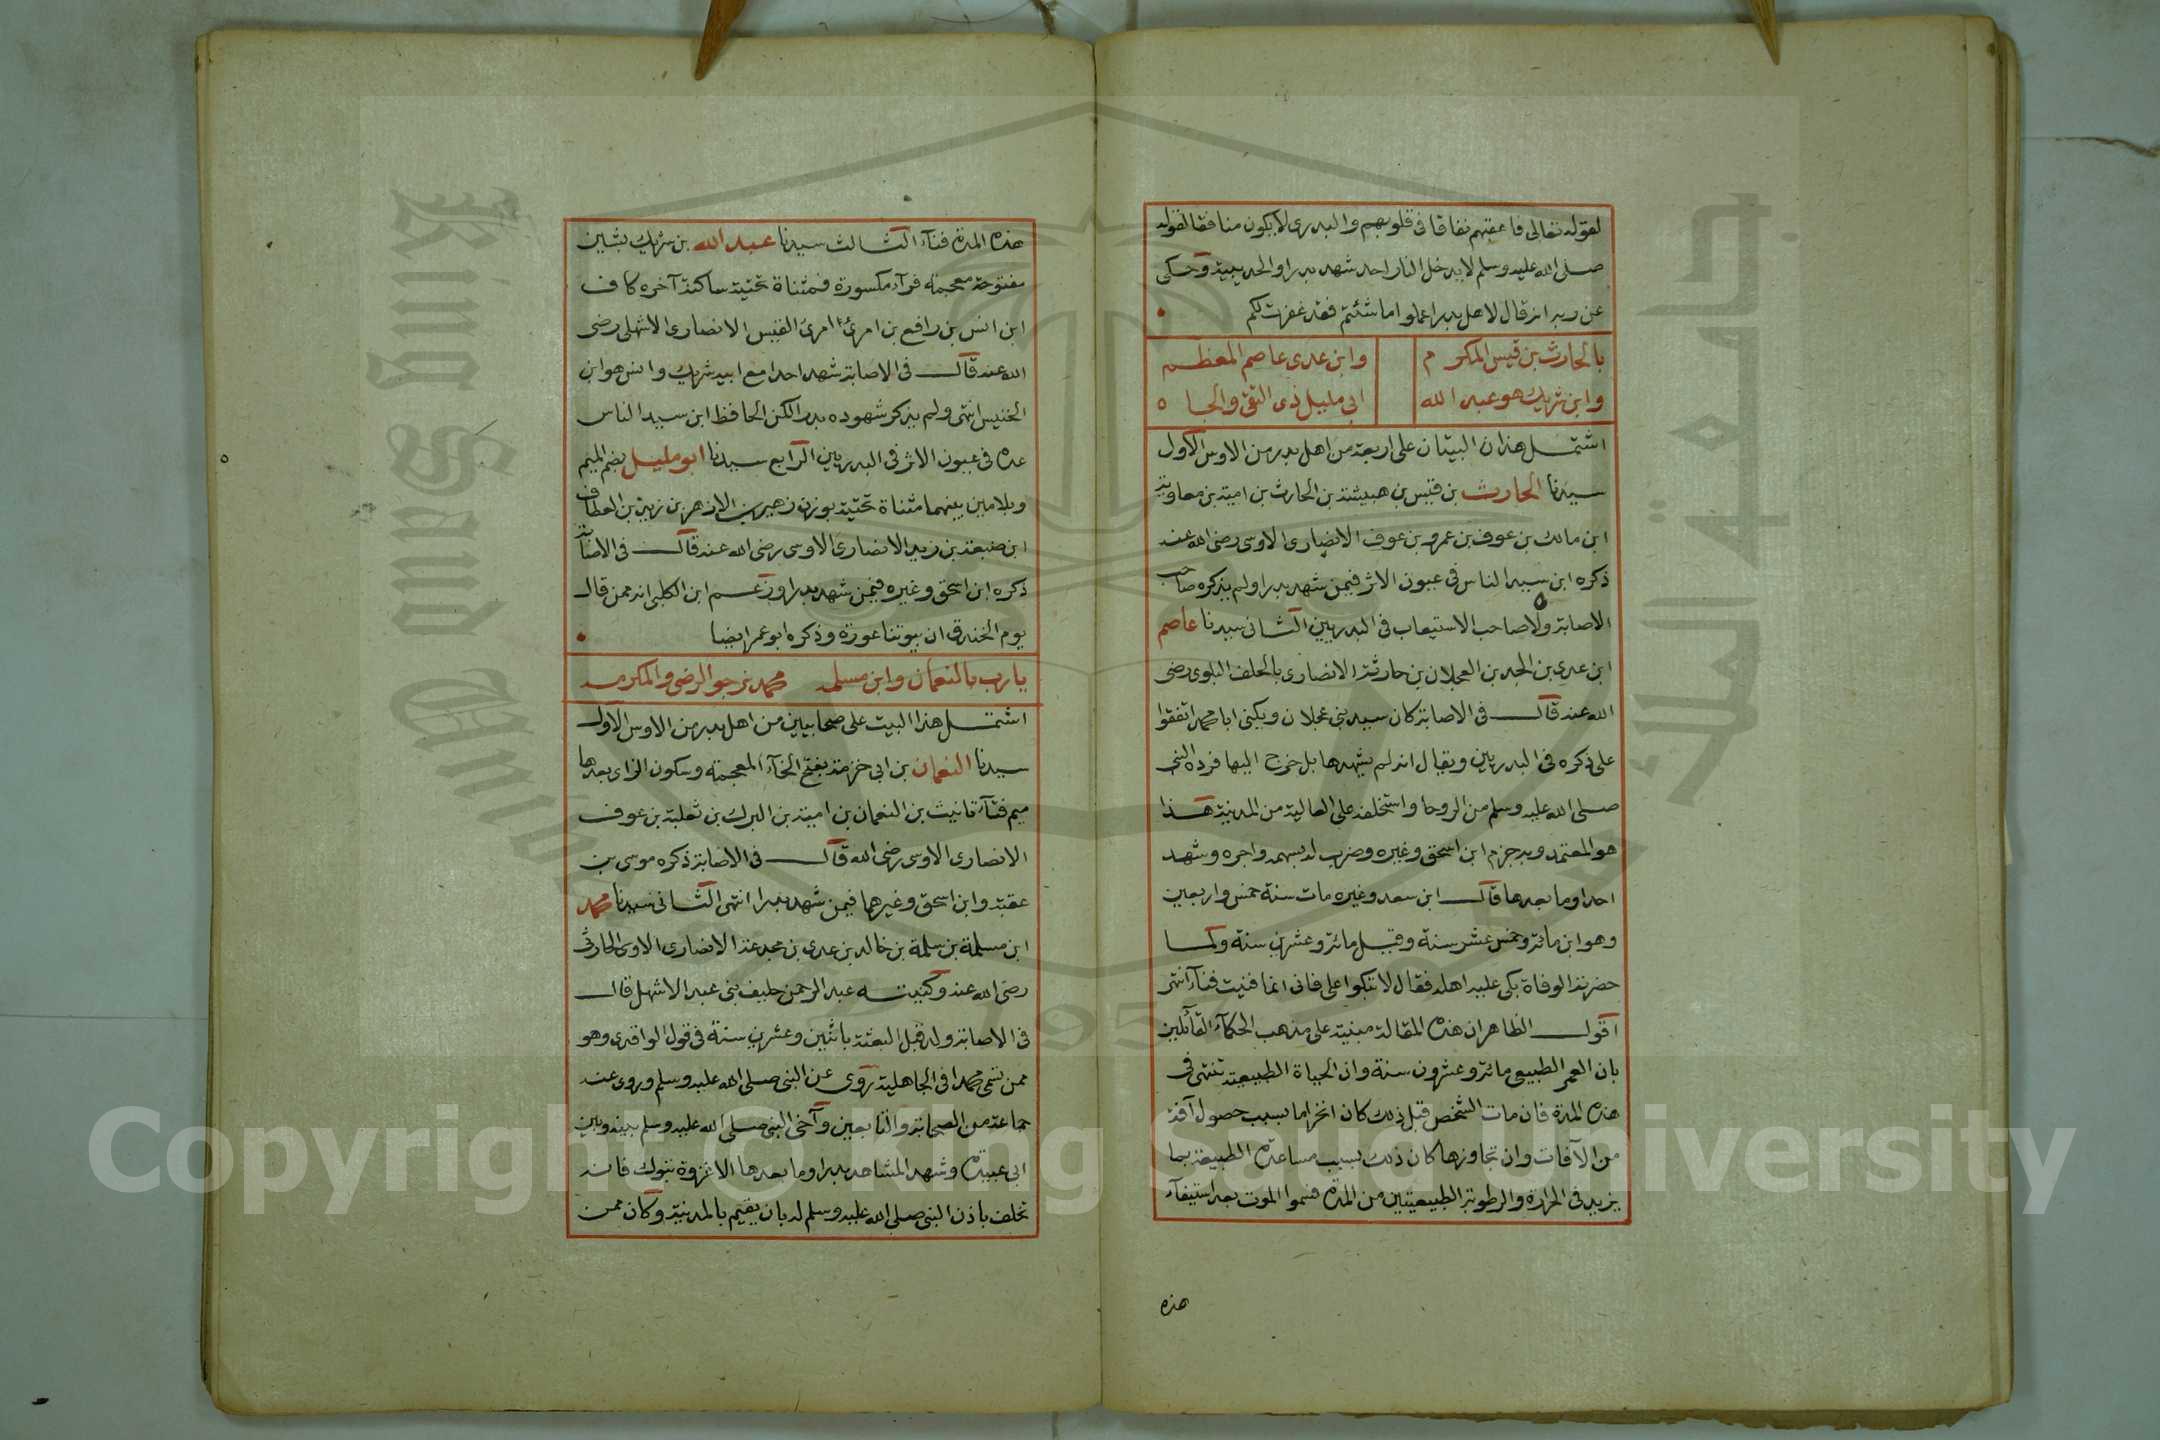 لقوله تعالى فاعقبهم نفاقا في قلوبهم والبدري لا يكون منافقا لقوله
صلى الله عليه وسلم لا يدخل النار احد شهد بدرا والحديبية وحكى
عن ربه انه قال لاهل بدر اعملوا ما شئتم فقد غفرت لكم
بالحارث بن قيس المكرم وابن عدي عاصم المعظم
وابن شريك هو عبد الله ابي مليل ذي التقى والجا ه
اشتمل هذان البيتان على اربعة من اهل بدر من الاوس الاول
سيدنا الحارث بن قيس بن هبيشة بن الحارث بن امية بن معاوية
ابن مالك بن عوف بن عمرو بن عوف الانصاري الاوسي رضي الله عنه
ذكره ابن سيد الناس في عيون الاثر فيمن شهد بدرا ولم يذكره صاحب
الاصابة ولا صاحب الاستيعاب في البدريين الثاني سيدنا عاصم
ابن عدي بن الجد بن العجلان بن حارثة الانصاري بالحلف البلوي رضي
الله عنه قال في الاصابة كان سيد بني عجلان ويكنى ابا محمد اتفقوا
على ذكره في البدريين ويقال انه لم يشهدها بل خرج اليها فرده النبي
صلى الله عليه وسلم من الروحا واستخلفه على العالية من المدينة هذا
هو المعتمد وبه جزم ابن اسحق وغيره وضرب له بسهمه واجره وشهد
احدا وما بعدها قال ابن سعد وغيره مات سنة خمس واربعين
وهو ابن مائة وخمس عشر سنة وقيل مائة وعشرين سنة ولما
حضرته الوفاة بكى عليه اهله فقال لا تبكوا علي فاني انما فنيت فناء انتهى
اقول الظاهر ان هذه المقالة مبنية على مذهب الحكماء القائلين
بان العمر الطبيعي مائة وعشرون سنة وان الحياة الطبيعية تنتهي في
هذه المدة فان مات الشخص قبل ذلك كان انخراما بسبب حصول آفة
من الآفات وان تجاوزها كان ذلك بسبب مساعدة الطبيعة بما
يزيد في الحرارة والرطوبة الطبيعيتين من المدة فسموا الموت بعد استيفاء
هذه
هذه المدة فناء الثالث سيدنا عبد الله بن شريك بشين
مفتوحة معجمة فراء مكسورة فمثناة تحتية ساكنة آخره كاف
ابن انس بن رافع بن امرئ امرئ القيس الانصاري الاشهلي رضي
الله عنه قال في الاصابة شهد احدا مع ابيه شريك وانس هو ابن
الخنيس انتهى ولم يذكر شهوده بدرا لكن الحافظ ابن سيد الناس
عده في عيون الاثر في البدريين الرابع سيدنا ابو مليل بضم الميم
وبلامين بينهما مثناة تحتية بوزن زهير بن الازهر بن زيد بن العطاف
ابن ضبيعة بن زيد الانصاري الاوسي رضي الله عنه قال في الاصابة
ذكره ابن اسحق وغيره فيمن شهد بدرا وزعم ابن الكلبي انه ممن قال
يوم الخندق ان بيوتنا عورة وذكره ابو عمر ايضا
يا رب بالنعمان وابن مسلمه محمد نرجو الرضى والمكرمه
اشتمل هذا البيت على صحابيين من اهل بدر من الاوس الاول
سيدنا النعمان بن ابي خزمة بفتح الخاء المعجمة وسكون الزاي بعدها
ميم فتاء تانيث بن النعمان بن امية بن البرك بن ثعلبة بن عوف
الانصاري الاوسي رضي الله قال في الاصابة ذكره موسى بن
عقبة وابن اسحق وغيرهما فيمن شهد بدرا انتهى الثاني سيدنا محمد
ابن مسلمة بن سلمة بن خالد بن عدي بن مجدعة الانصاري الاوسي الحارثي
رضي الله عنه وكنيته عبد الرحمن حليف بني عبد الاشهل قال
في الاصابة ولد قبل البعثة باثنين وعشرين سنة في قول الواقدي وهو
ممن سمي محمدا في الجاهلية روى عن النبي صلى الله عليه وسلم وروى عنه
جماعة من الصحابة والتابعين وآخى النبي صلى الله عليه وسلم بينه وبين
ابي عبيدة وشهد المشاهد بدرا وما بعدها الا غزوة تبوك فانه
تخلف باذن النبي صلى الله عليه وسلم له بان يقيم بالمدينة وكان ممن
Copyright © King Saud University
King Saud University
جامعة الملك سعود
1957